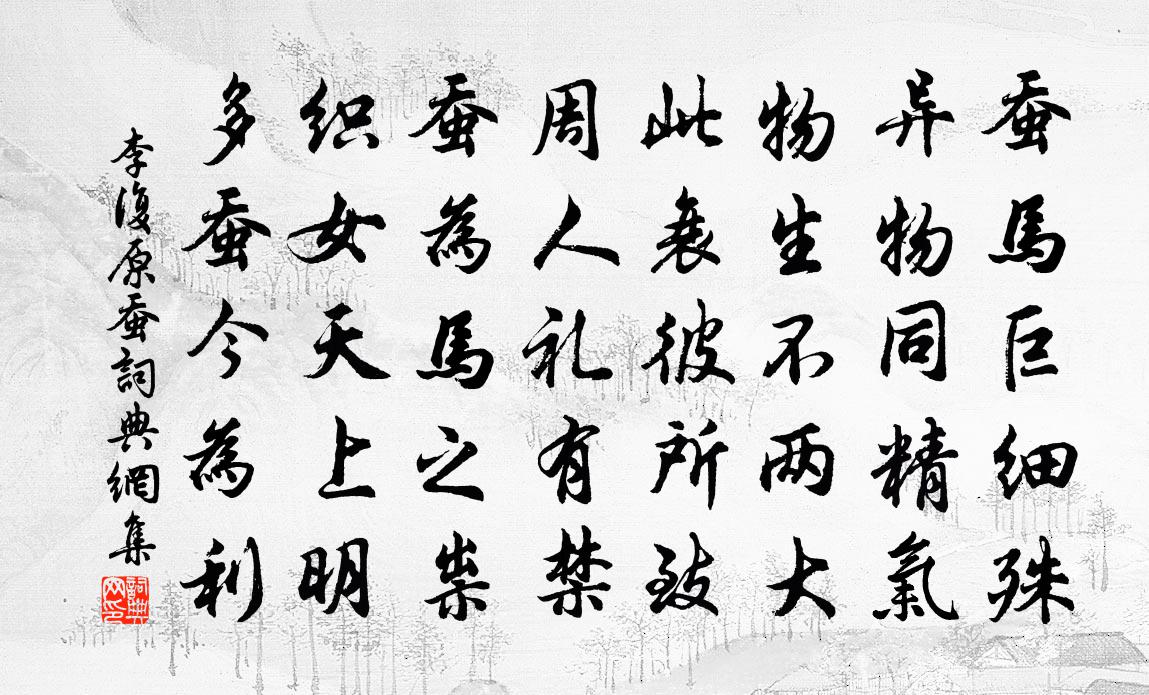 蚕馬巨细殊
异物同精氣
物生不两大
此衰彼所致
周人礼有禁
蚕為馬之祟
织女天上明
多蚕今為利
李復原蚕詞典網集
詞典网印